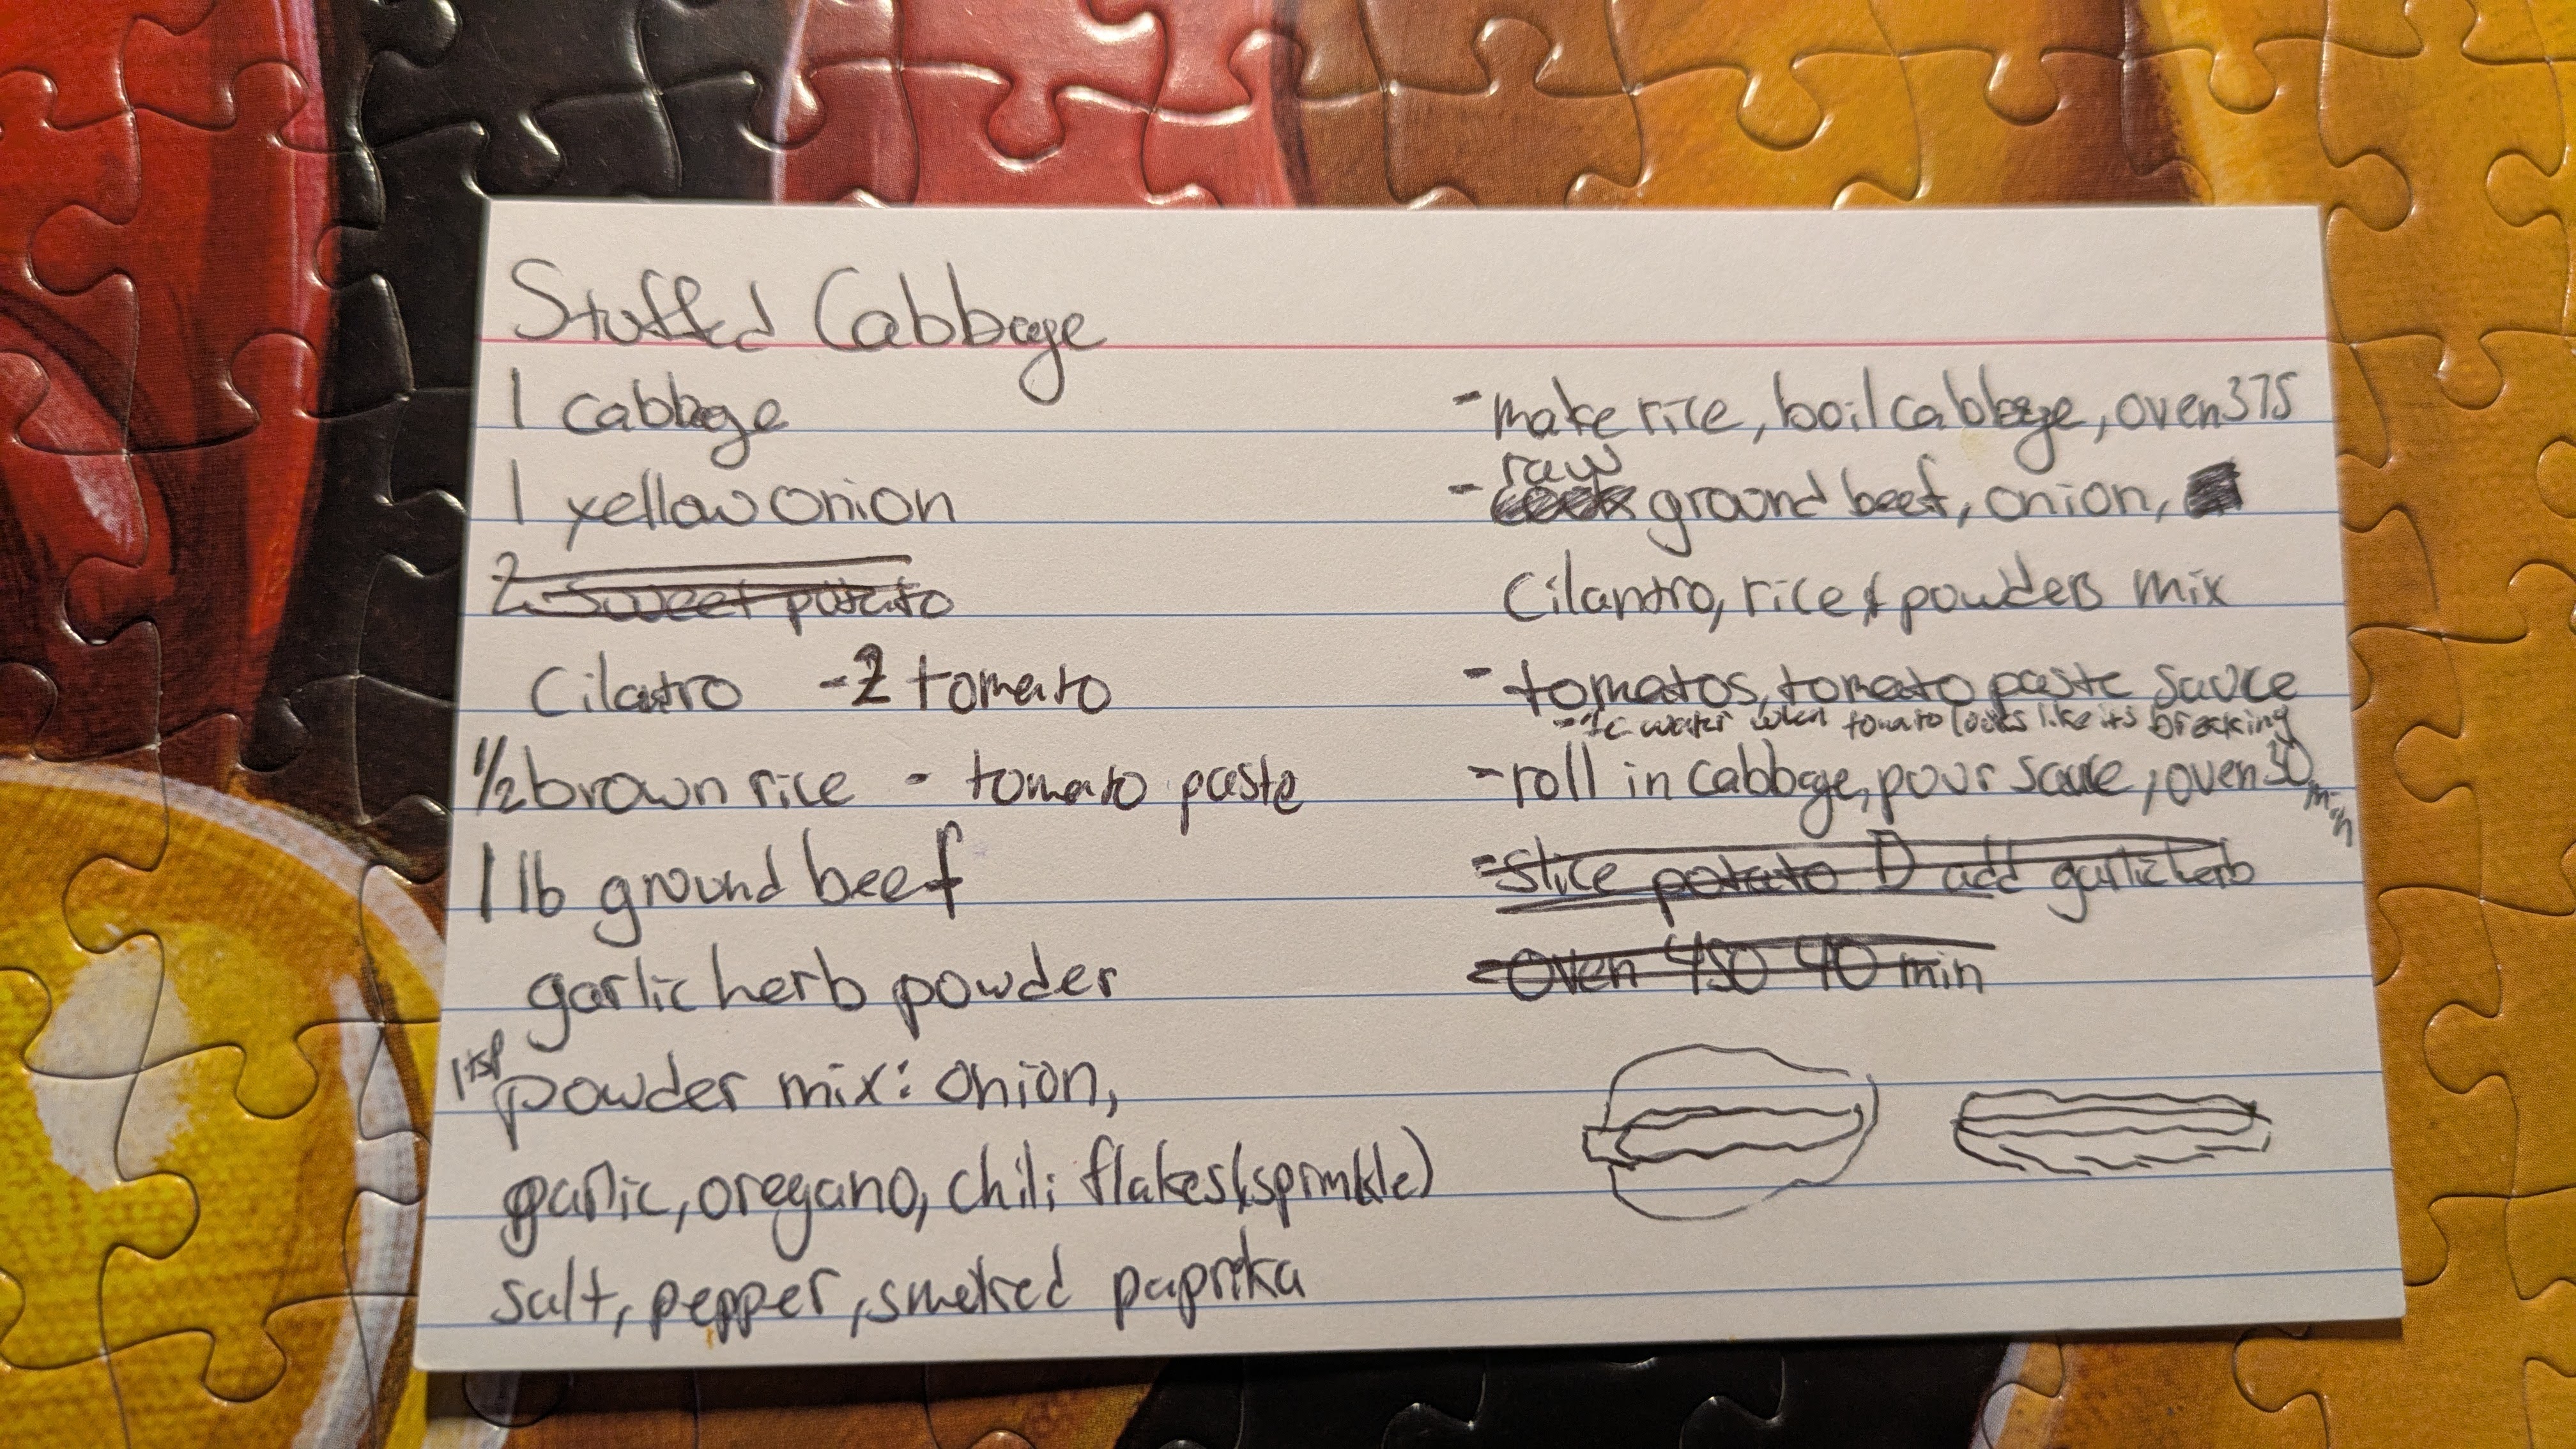 Stuffed Cabbage
1 cabbage
1 yellow onion
2 sweet potato
Cilantro - 2 tomato
1/2 brown rice - tomato paste
1 lb ground beef
garlic herb powder
1 tsp powder mix: onion,
garlic, oregano, chili flakes (sprinkle)
salt, pepper, smoked paprika
- make rice, boil cabbage, oven 375
raw
- cook ground beef, onion,
Cilantro, rice & powders mix
- tomatos, tomato paste sauce
c water when tomato looks like its breaking
- roll in cabbage, pour sauce, oven 30 min
- slice potato D add garlic herb
- Oven 450 40 min